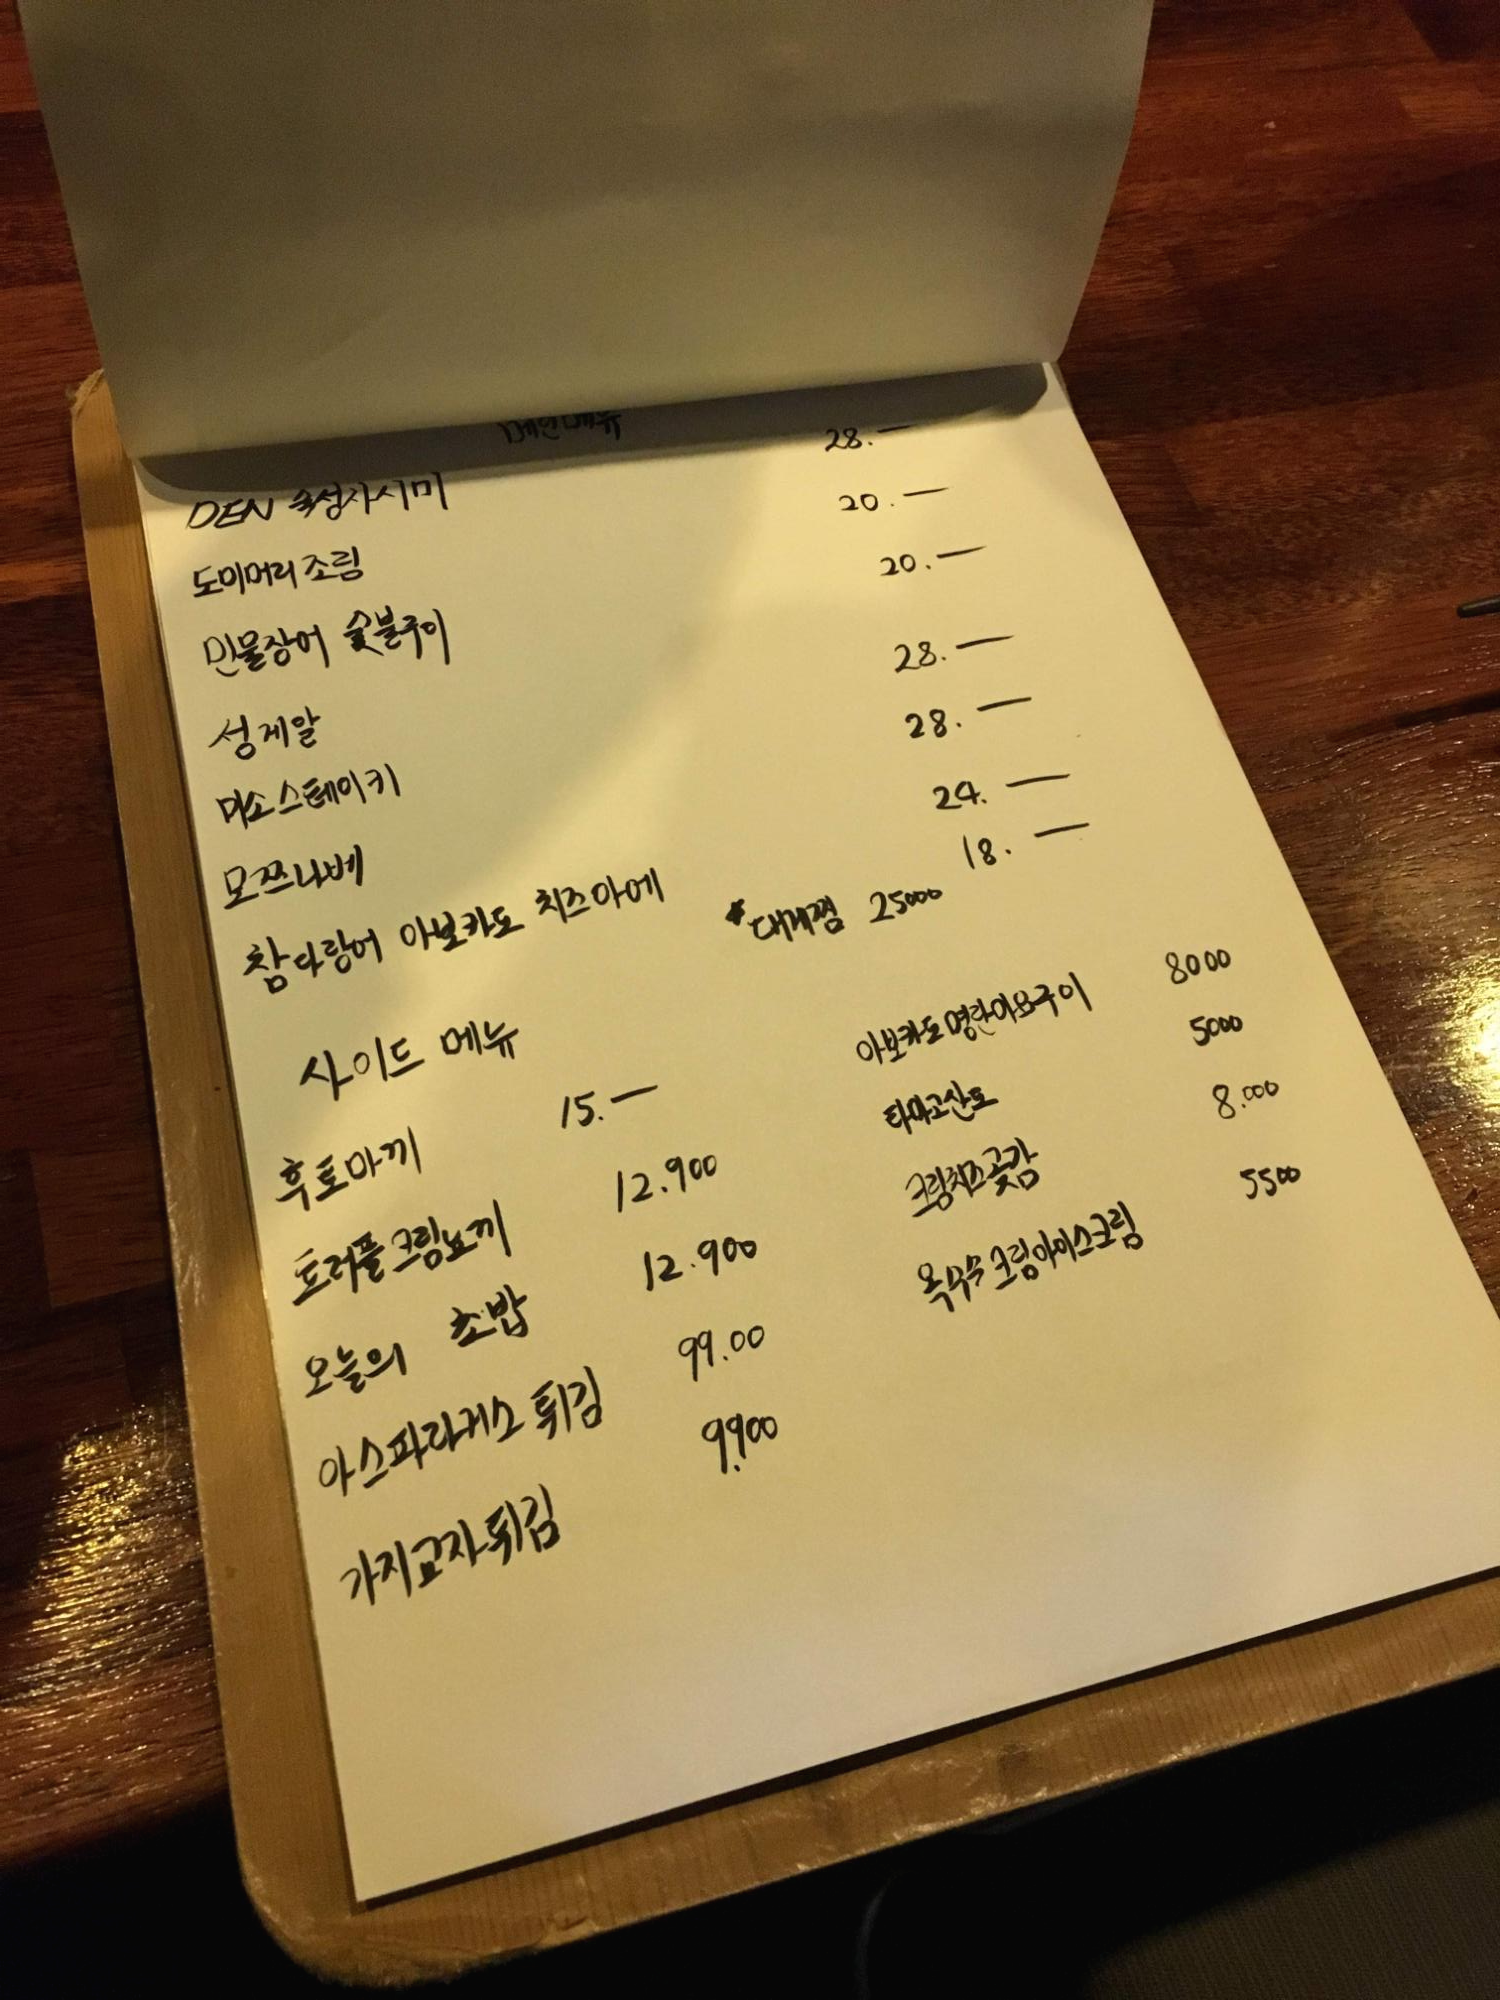 메인메뉴
DEN 숙성사시미 28.—
도미머리 조림 20.—
민물장어 숯불구이 20.—
성게알 28.—
미소스테이키 28.—
모쯔나베 24.—
참다랑어 아보카도 치즈아에 18.—
*대게찜 25000
사이드 메뉴
후토마끼 15.—
트러플크림뇨끼 12.900
오늘의 초밥 12.900
아스파라거스 튀김 99.00
가지교자튀김 9.900
아보카도명란미요구이 8000
타마고산도 5000
크림치즈곶감 8.000
옥수수크림아이스크림 5500